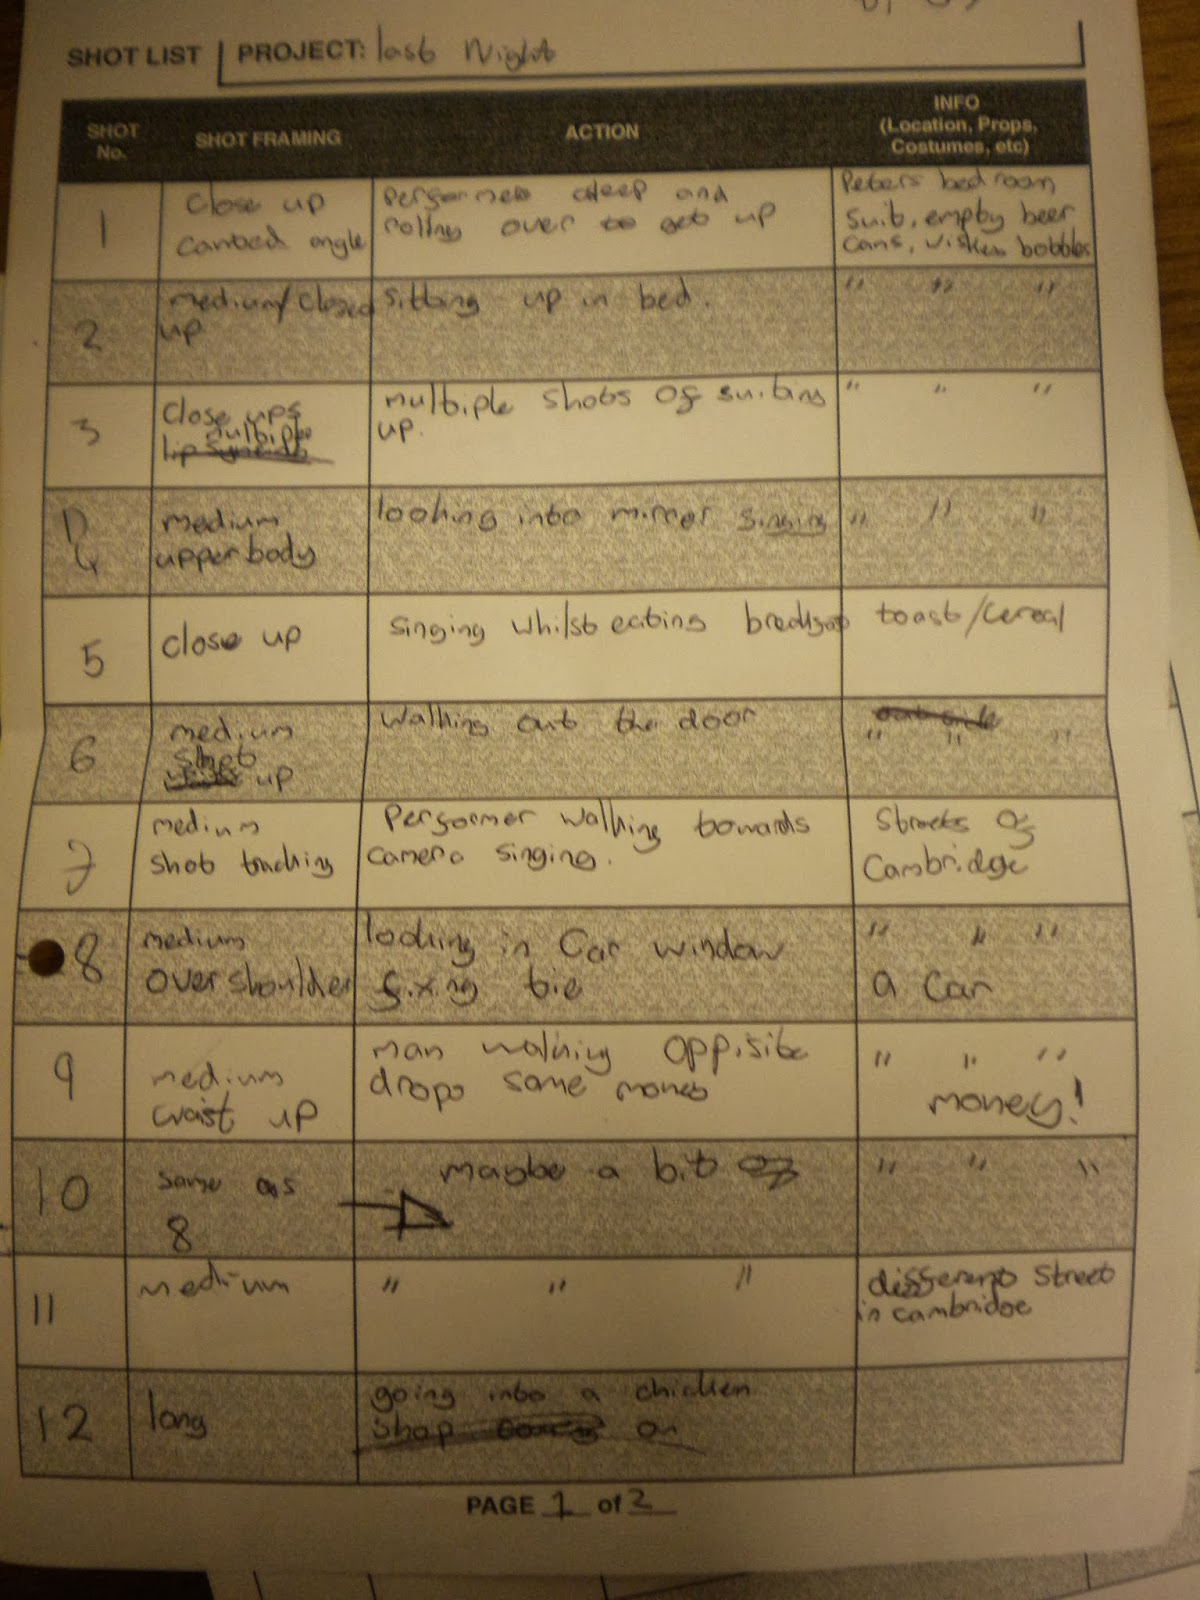 SHOT LIST PROJECT: last Night
SHOT No. SHOT FRAMING ACTION INFO (Location, Props, Costumes, etc)
1 close up canted angle
performer asleep and
rolling over to get up
Peters bedroom
suit, empty beer
cans, bottles
2 medium/closed up
sitting up in bed.
" " "
3 close ups multiple
multiple shots of suiting
up.
" " "
4 medium
upperbody
looking into mirror singing
" " "
5 close up
singing whilst eating
toast/cereal
6 medium
shot
up
walking out the door
" " "
7 medium
shot tracking
Performer walking towards
camera singing.
Streets of
Cambridge
8 medium
over shoulder
looking in Car window
fixing tie
" " "
a Car
9 medium
waist up
man walking oppisite
drops some money
" " "
money!
10 same as
8
maybe a bit of
" " "
11 medium
" " "
different street
in cambridge
12 long
going into a chicken
shop on
PAGE 1 of 2